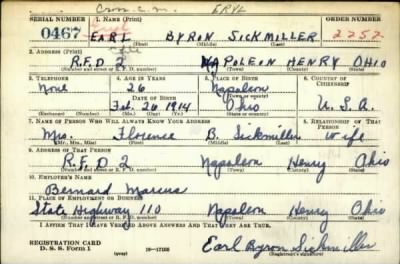 ERYL
SERIAL NUMBER 1. NAME (Print) ORDER NUMBER
0467 EARL BYRON SICKMILLER 2252
(First) (Middle) (Last)
2. ADDRESS (Print)
R.F.D 2 NAPOLEON HENRY OHIO
(Number and street or R. F. D. number) (Town) (County) (State)
3. TELEPHONE 4. AGE IN YEARS 5. PLACE OF BIRTH 6. COUNTRY OF CITIZENSHIP
None 26 Napoleon
DATE OF BIRTH (Town or county)
Feb. 26 1914 Ohio U.S.A.
(Exchange) (Number) (Mo.) (Day) (Yr.) (State or country)
7. NAME OF PERSON WHO WILL ALWAYS KNOW YOUR ADDRESS 8. RELATIONSHIP OF THAT PERSON
Mrs. Florence B. Sickmiller wife
(Mr., Mrs., Miss) (First) (Middle) (Last)
9. ADDRESS OF THAT PERSON
R.F.D 2 Napoleon Henry Ohio
(Number and street or R. F. D. number) (Town) (County) (State)
10. EMPLOYER'S NAME
Bernard Marcus
11. PLACE OF EMPLOYMENT OR BUSINESS
State Highway 110 Napoleon Henry Ohio
(Number and street or R. F. D. number) (Town) (County) (State)
I AFFIRM THAT I HAVE VERIFIED ABOVE ANSWERS AND THAT THEY ARE TRUE.
REGISTRATION CARD
D. S. S. Form 1 (over) 16-17105 Earl Byron Sickmiller
(Registrant's signature)